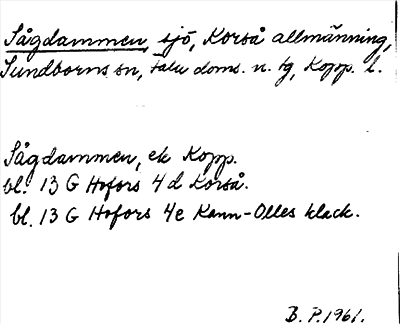 Sågdammen, sjö, Korså allmänning,
Sundborns sn, Falu doms. n. tg, Kopp. l.
Sågdammen, ek Kopp.
bl. 13 G Hofors 4d Korså.
bl. 13 G Hofors 4e Kann-Olles klack.
B. P. 1961.